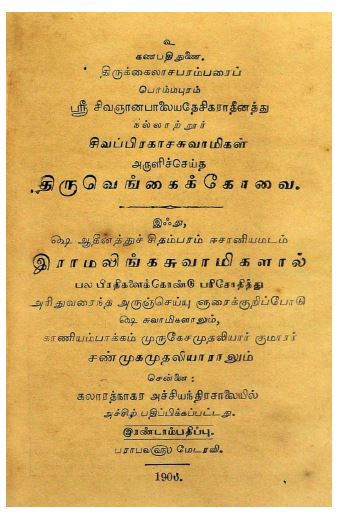 உ
கணபதிதுணை.
திருக்கைலாசபரம்பரைப்
பொம்மபுரம்
ஸ்ரீ சிவஞானபாலையதேசிகராதீனத்து
நல்லாற்றூர்
சிவப்பிரகாசசுவாமிகள்
அருளிச்செய்த
திருவெங்கைக்கோவை.
இஃது,
ஷை ஆதீனத்துச் சிதம்பரம் ஈசானியமடம்
இராமலிங்கசுவாமிகளால்
பல பிரதிகளைக்கொண்டு பரிசோதித்து
அரிதுவரைந்த அருஞ்செய்யு ளுரைக்குறிப்போடு
ஷை சுவாமிகளாலும்,
காணியம்பாக்கம் முருகேசமுதலியார் குமாரர்
சண்முகமுதலியாராலும்
சென்னை:
கலாரத்நாகர அச்சியந்திரசாலையில்
அச்சிற் பதிப்பிக்கப்பட்டது.
இரண்டாம்பதிப்பு.
பராபவ௵ மேடரவி.
1906.